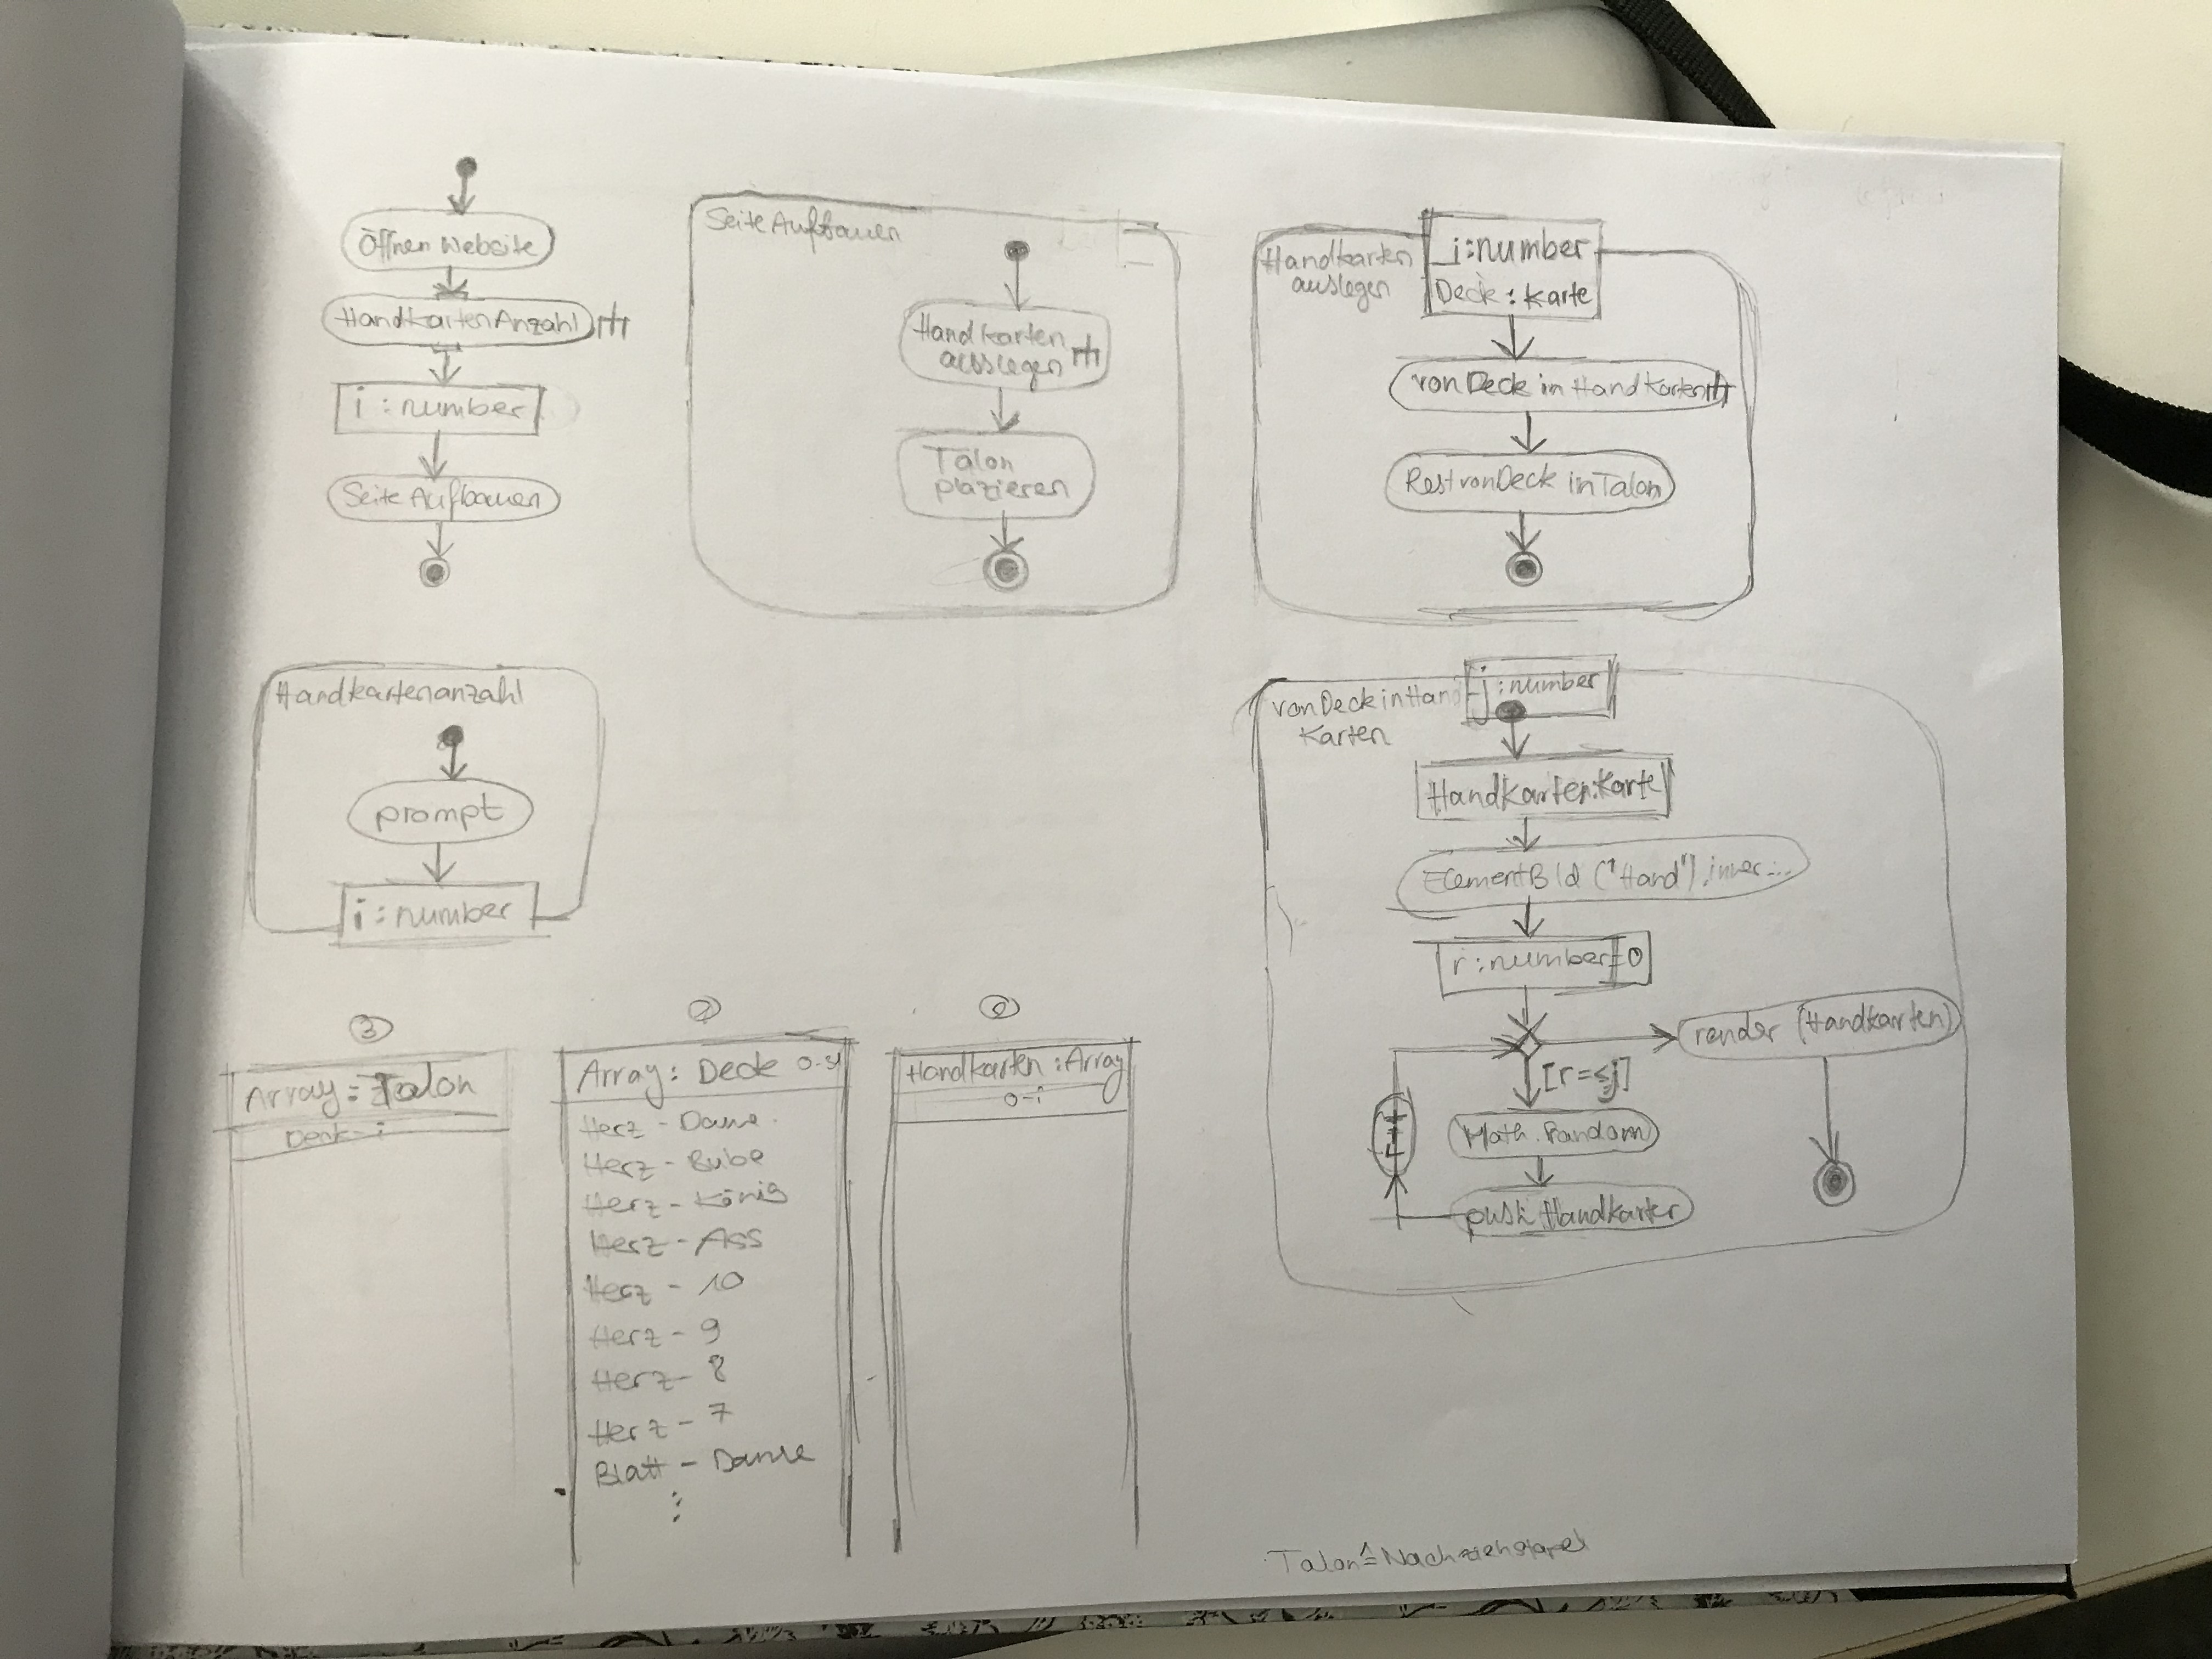 Öffnen Website
HandkartenAnzahl
i : number
Seite Aufbauen
Seite Aufbauen
Handkarten
auslegen
Talon
plazieren
Handkarten
auslegen
i : number
Deck : Karte
von Deck in Handkarten
Rest von Deck in Talon
Handkartenanzahl
prompt
i : number
von Deck in Hand
Karten
j : number
Handkarten:Karte
ElementBId ("Hand").inner...
r : number = 0
render (Handkarten)
[r=≤j]
Math.Random
push Handkarten
3
Array : Talon
Deck - i
Array : Deck
Herz - Dame
Herz - Bube
Herz - König
Herz - Ass
Herz - 10
Herz - 9
Herz - 8
Herz - 7
Blatt - Dame
⋮
2
Handkarten : Array
0-i
Talon ≙ Nachziehstapel